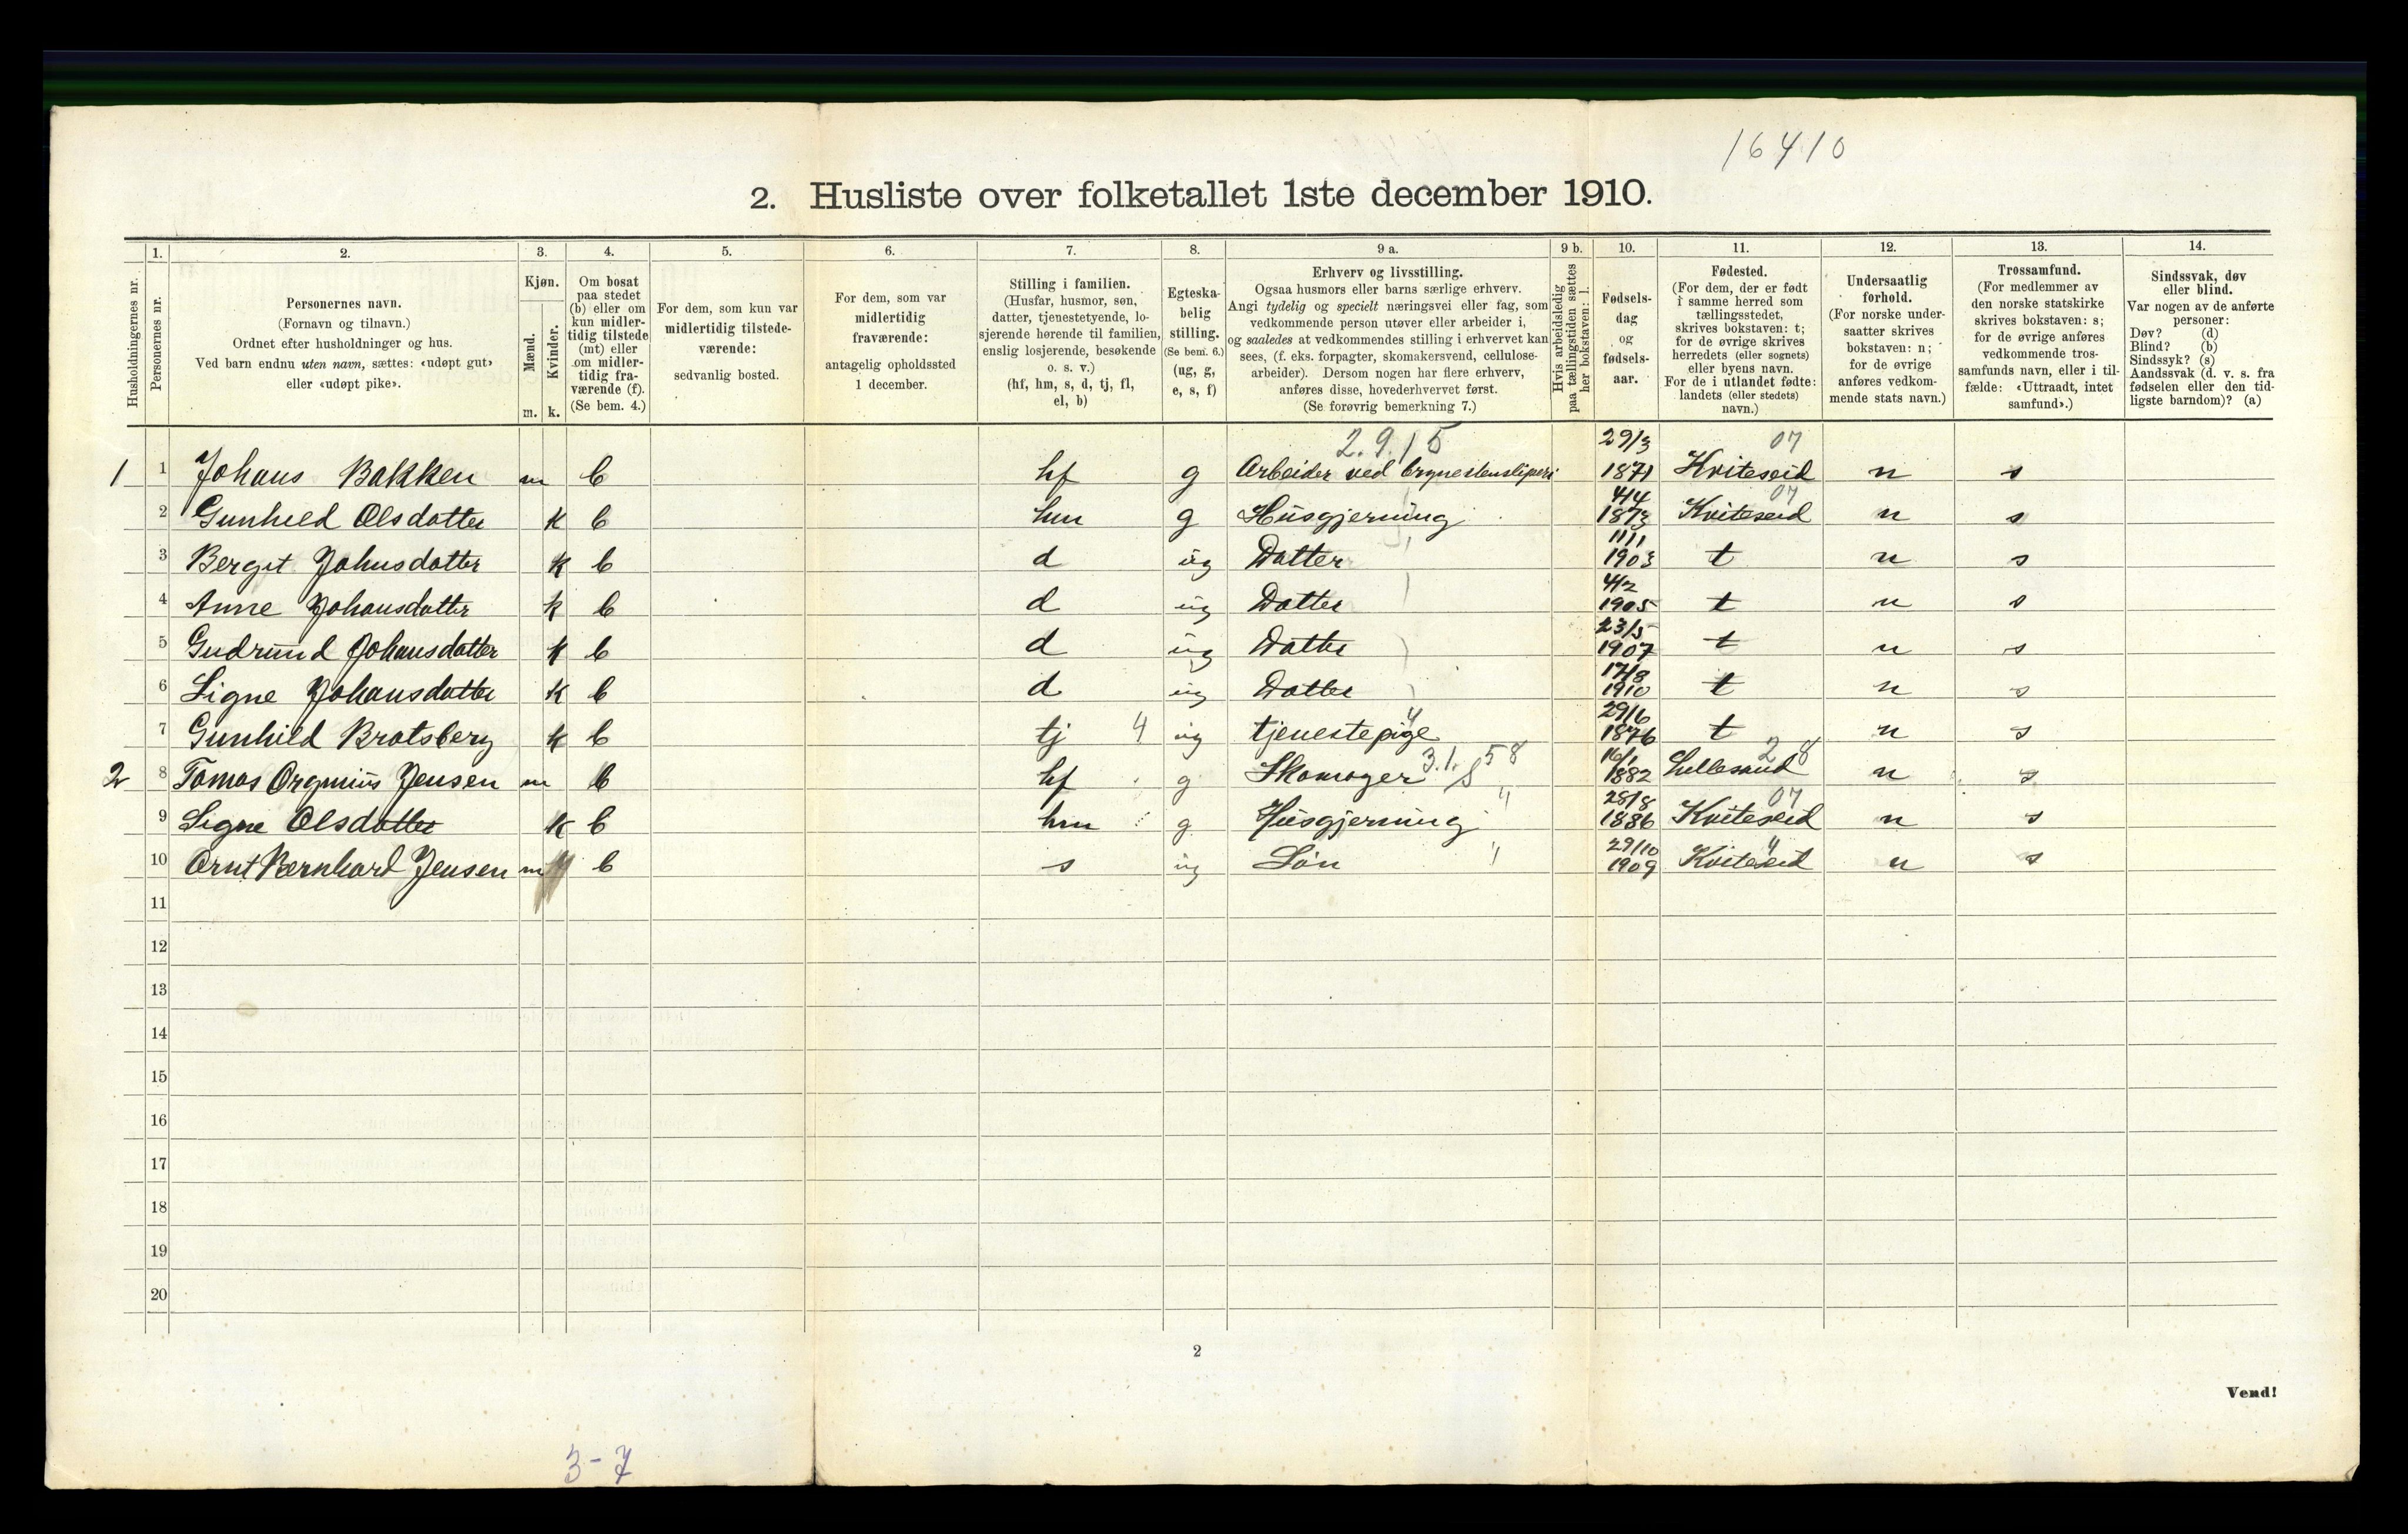 16410
2. Husliste over folketallet 1ste december 1910.
Husholdningernes nr.
1.
Personernes nr.
2.
Personernes navn.
(Fornavn og tilnavn.)
Ordnet efter husholdninger og hus.
Ved barn endnu uten navn, sættes: «udøpt gut»
eller «udøpt pike».
3.
Kjøn.
Mænd.
Kvinder.
m. k.
4.
Om bosat
paa stedet
(b) eller om
kun midler-
tidig tilstede
(mt) eller
om midler-
tidig fra-
værende (f).
(Se bem. 4.)
5.
For dem, som kun var
midlertidig tilstede-
værende:
sedvanlig bosted.
6.
For dem, som var
midlertidig
fraværende:
antagelig opholdssted
1 december.
7.
Stilling i familien.
(Husfar, husmor, søn,
datter, tjenestetyende, lo-
sjerende hørende til familien,
enslig losjerende, besøkende
o. s. v.)
(hf, hm, s, d, tj, fl,
el, b)
8.
Egteska-
belig
stilling.
(Se bem. 6.)
(ug, g,
e, s, f)
9 a.
Erhverv og livsstilling.
Ogsaa husmors eller barns særlige erhverv.
Angi tydelig og specielt næringsvei eller fag, som
vedkommende person utøver eller arbeider i,
og saaledes at vedkommendes stilling i erhvervet kan
sees, (f. eks. forpagter, skomakersvend, cellulose-
arbeider). Dersom nogen har flere erhverv,
anføres disse, hovederhvervet først.
(Se forøvrig bemerkning 7.)
9 b.
Hvis arbeidsledig
paa tællingstiden sættes
her bokstaven: l.
10.
Fødsels-
dag
og
fødsels-
aar.
11.
Fødested.
(For dem, der er født
i samme herred som
tællingsstedet,
skrives bokstaven: t;
for de øvrige skrives
herredets (eller sognets)
eller byens navn.
For de i utlandet fødte:
landets (eller stedets)
navn.)
12.
Undersaatlig
forhold.
(For norske under-
saatter skrives
bokstaven: n;
for de øvrige
anføres vedkom-
mende stats navn.)
13.
Trossamfund.
(For medlemmer av
den norske statskirke
skrives bokstaven: s;
for de øvrige anføres
vedkommende tros-
samfunds navn, eller i til-
fælde: «Uttraadt, intet
samfund».)
14.
Sindssvak, døv
eller blind.
Var nogen av de anførte
personer:
Døv? (d)
Blind? (b)
Sindssyk? (s)
Aandssvak (d. v. s. fra
fødselen eller den tid-
ligste barndom)? (a)
2.9.15 29/3 07
1 1 Johans Bakken m b hf g Arbeider ved brynestensliperi 1871 Hviteseid n s
4/4 07
2 Gunhild Olsdatter k b hm g Husgjerning 1873 Kviteseid n s
11/11
3 Bergit Johnsdatter k b d ug Datter 1903 t n s
4/2
4 Anne Johansdatter k b d ug Datter 1905 t n s
23/5
5 Gudrund Johansdatter k b d ug Datter 1907 t n s
17/8
6 Signe Johansdatter k b d ug Datter 1910 t n s
29/6
7 Gunhild Bratsberg k b tj 4 ug tjenestepige 4 1876 t n s
3.1.58 16/1 28
2 8 Tomas Orgenius Jensen m b hf g Skomager 1882 Lillesand n s
28/8 07
9 Signe Olsdatter k b hm g Husgjerning 4 1886 Kviteseid n s
29/10 4
10 Arnt Bernhard Jensen m b s ug Søn 4 1909 Kviteseid n s
11
12
13
14
15
16
17
18
19
20
2
Vend!
3-7